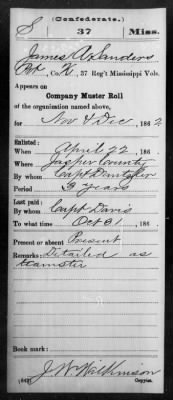 (Confederate.)
S 37 Miss.
James A Sanders
Pvt, Co. , 37 Reg't Mississippi Vols.
Appears on
Company Muster Roll
of the organization named above,
for Nov & Dec, 1862
Enlisted:
When April 22, 186 .
Where Jasper County
By whom Capt
Period 3 years
Last paid:
By whom Capt Davis
To what time Oct 31, 186 .
Present or absent Present
Remarks: Detailed as
teamster
Book mark:
J. W. Wilkinson
(642) Copyist.